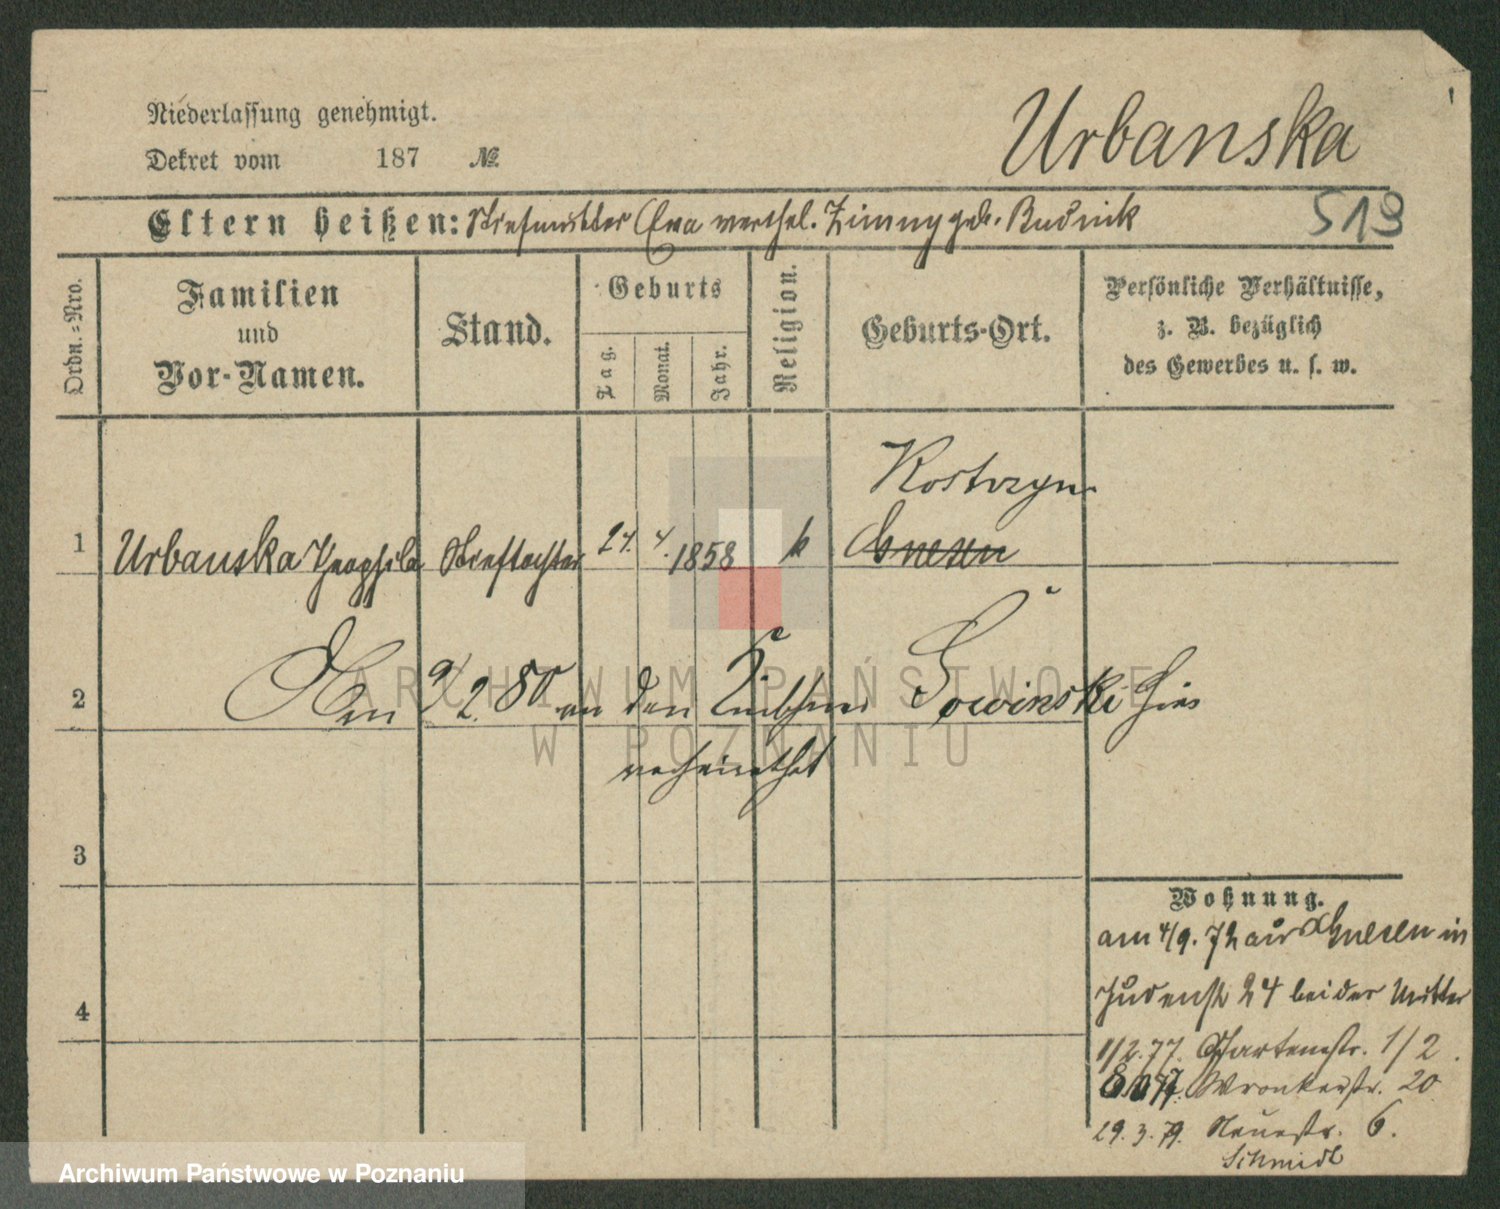 Niederlassung genehmigt.
Dekret vom 187 №
Urbanska
519
Eltern heißen: Stiefmutter Eva verehel. Zimny geb. Budnik
Ordn.-Nro.
Familien
und
Vor-Namen.
Stand.
Geburts
Tag.
Monat.
Jahr.
Religion.
Geburts-Ort.
Persönliche Verhältnisse,
z. B. bezüglich
des Gewerbes u. s. w.
Kostrzyn
1 Urbanska Theophila Stieftochter 24. 4. 1858 k Gnesen
2 Am 9/2. 80 an den Sowinski hier
verheirathet
3
4
Wohnung.
am 4/9. 72 aus Gnesen in
Judenstr 24 bei der Mutter
1/2. 77. Gartenstr. 1/2.
77. Wronkerstr. 20
29. 3. 79. Neuestr. 6.
Schmidt
ARCHIWUM PAŃSTWOWE
W POZNANIU
Archiwum Państwowe w Poznaniu